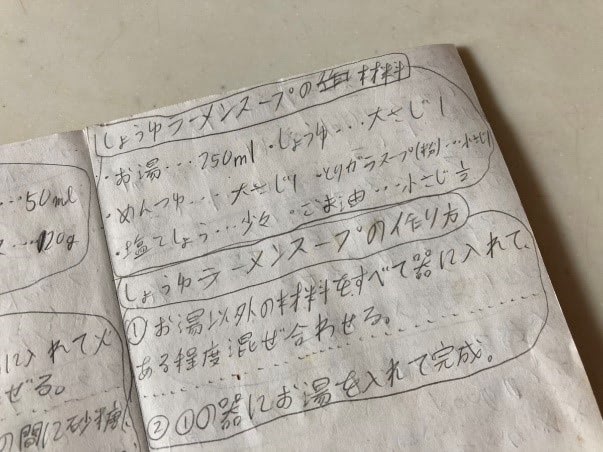 …50ml
…120g
に入れて火
ぜる。
の間に砂糖、
しょうゆラーメンスープの材料
・お湯…250ml ・しょうゆ…大さじ1
・めんつゆ…大さじ1 ・とりガラスープ(粉)…小さじ1
・塩こしょう…少々 ・ごま油…小さじ
しょうゆラーメンスープの作り方
①お湯以外の材料をすべて器に入れて、
ある程度混ぜ合わせる。
②①の器にお湯を入れて完成。